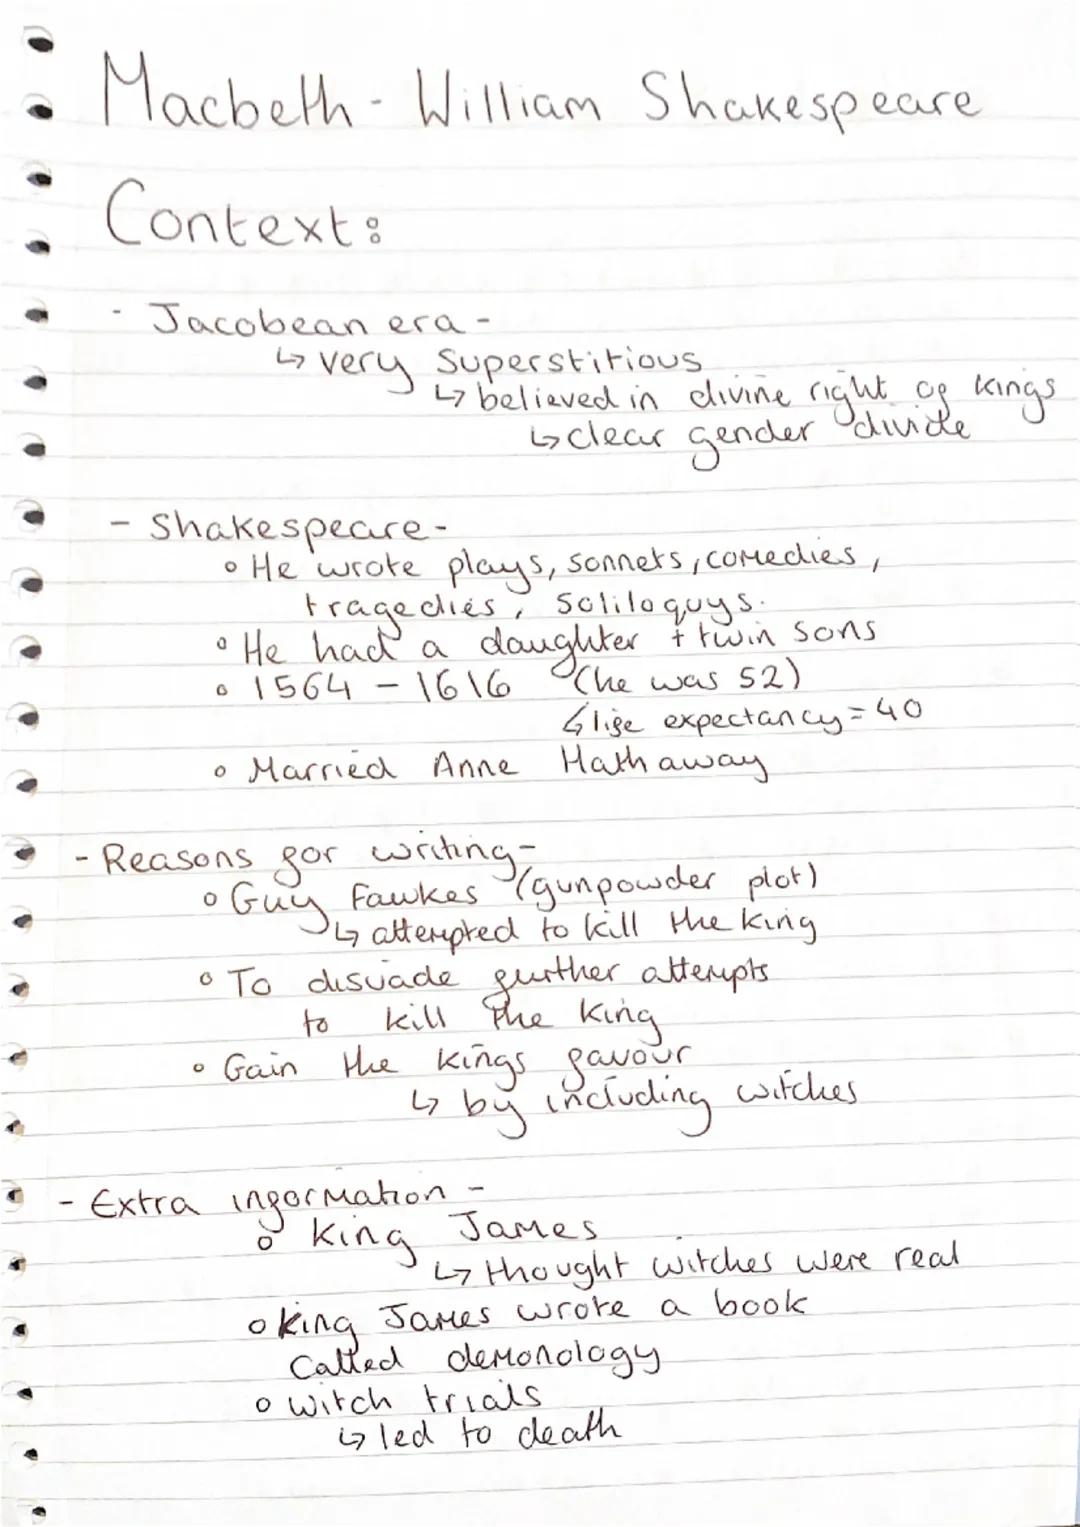 Macbeth - William Shakespeare
Context:
- Jacobean era -
↳ very Superstitious
↳ believed in divine right of kings
↳ clear gender divide
- Shakespeare -
• He wrote plays, sonnets, comedies,
tragedies, soliloquys.
• He had a daughter + twin sons
• 1564 - 1616 (he was 52)
↳ life expectancy = 40
• Married Anne Hathaway
- Reasons for writing -
• Guy Fawkes (gunpowder plot)
↳ attempted to kill the king
• To disuade further attempts
to kill the king
• Gain the kings favour
↳ by including witches
- Extra information -
• King James
↳ thought witches were real
• King James wrote a book
Called demonology
• witch trials
↳ led to death